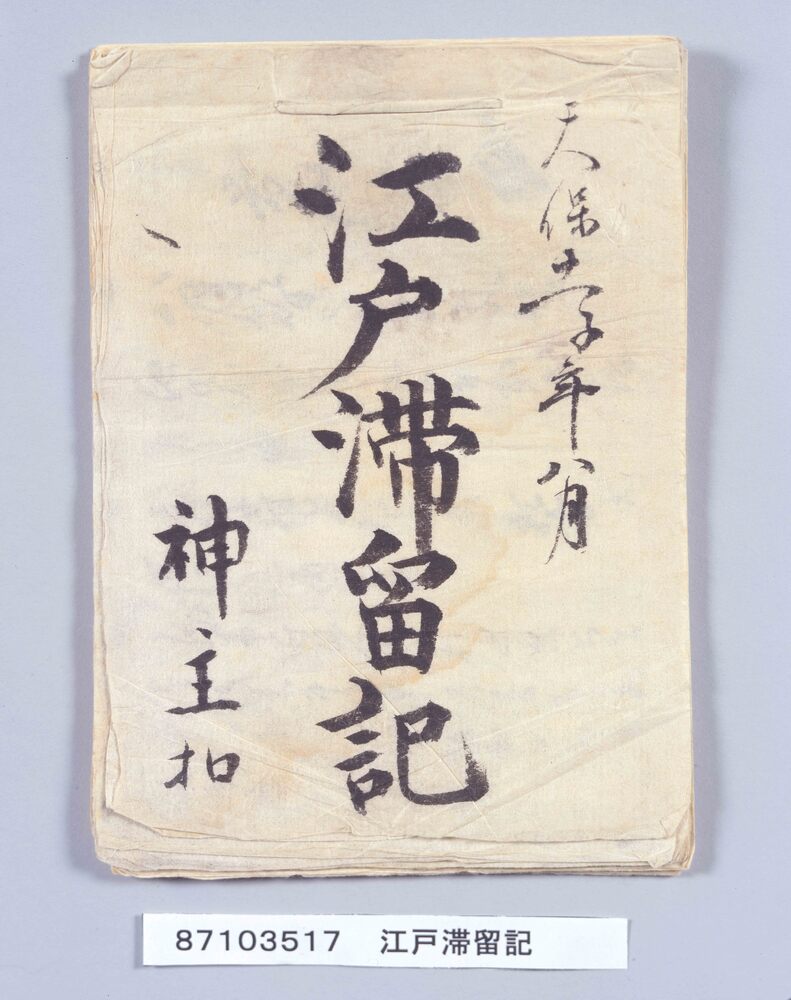 天保十一子年八月
江戸滞留記
神主扣
87103517 江戸滞留記